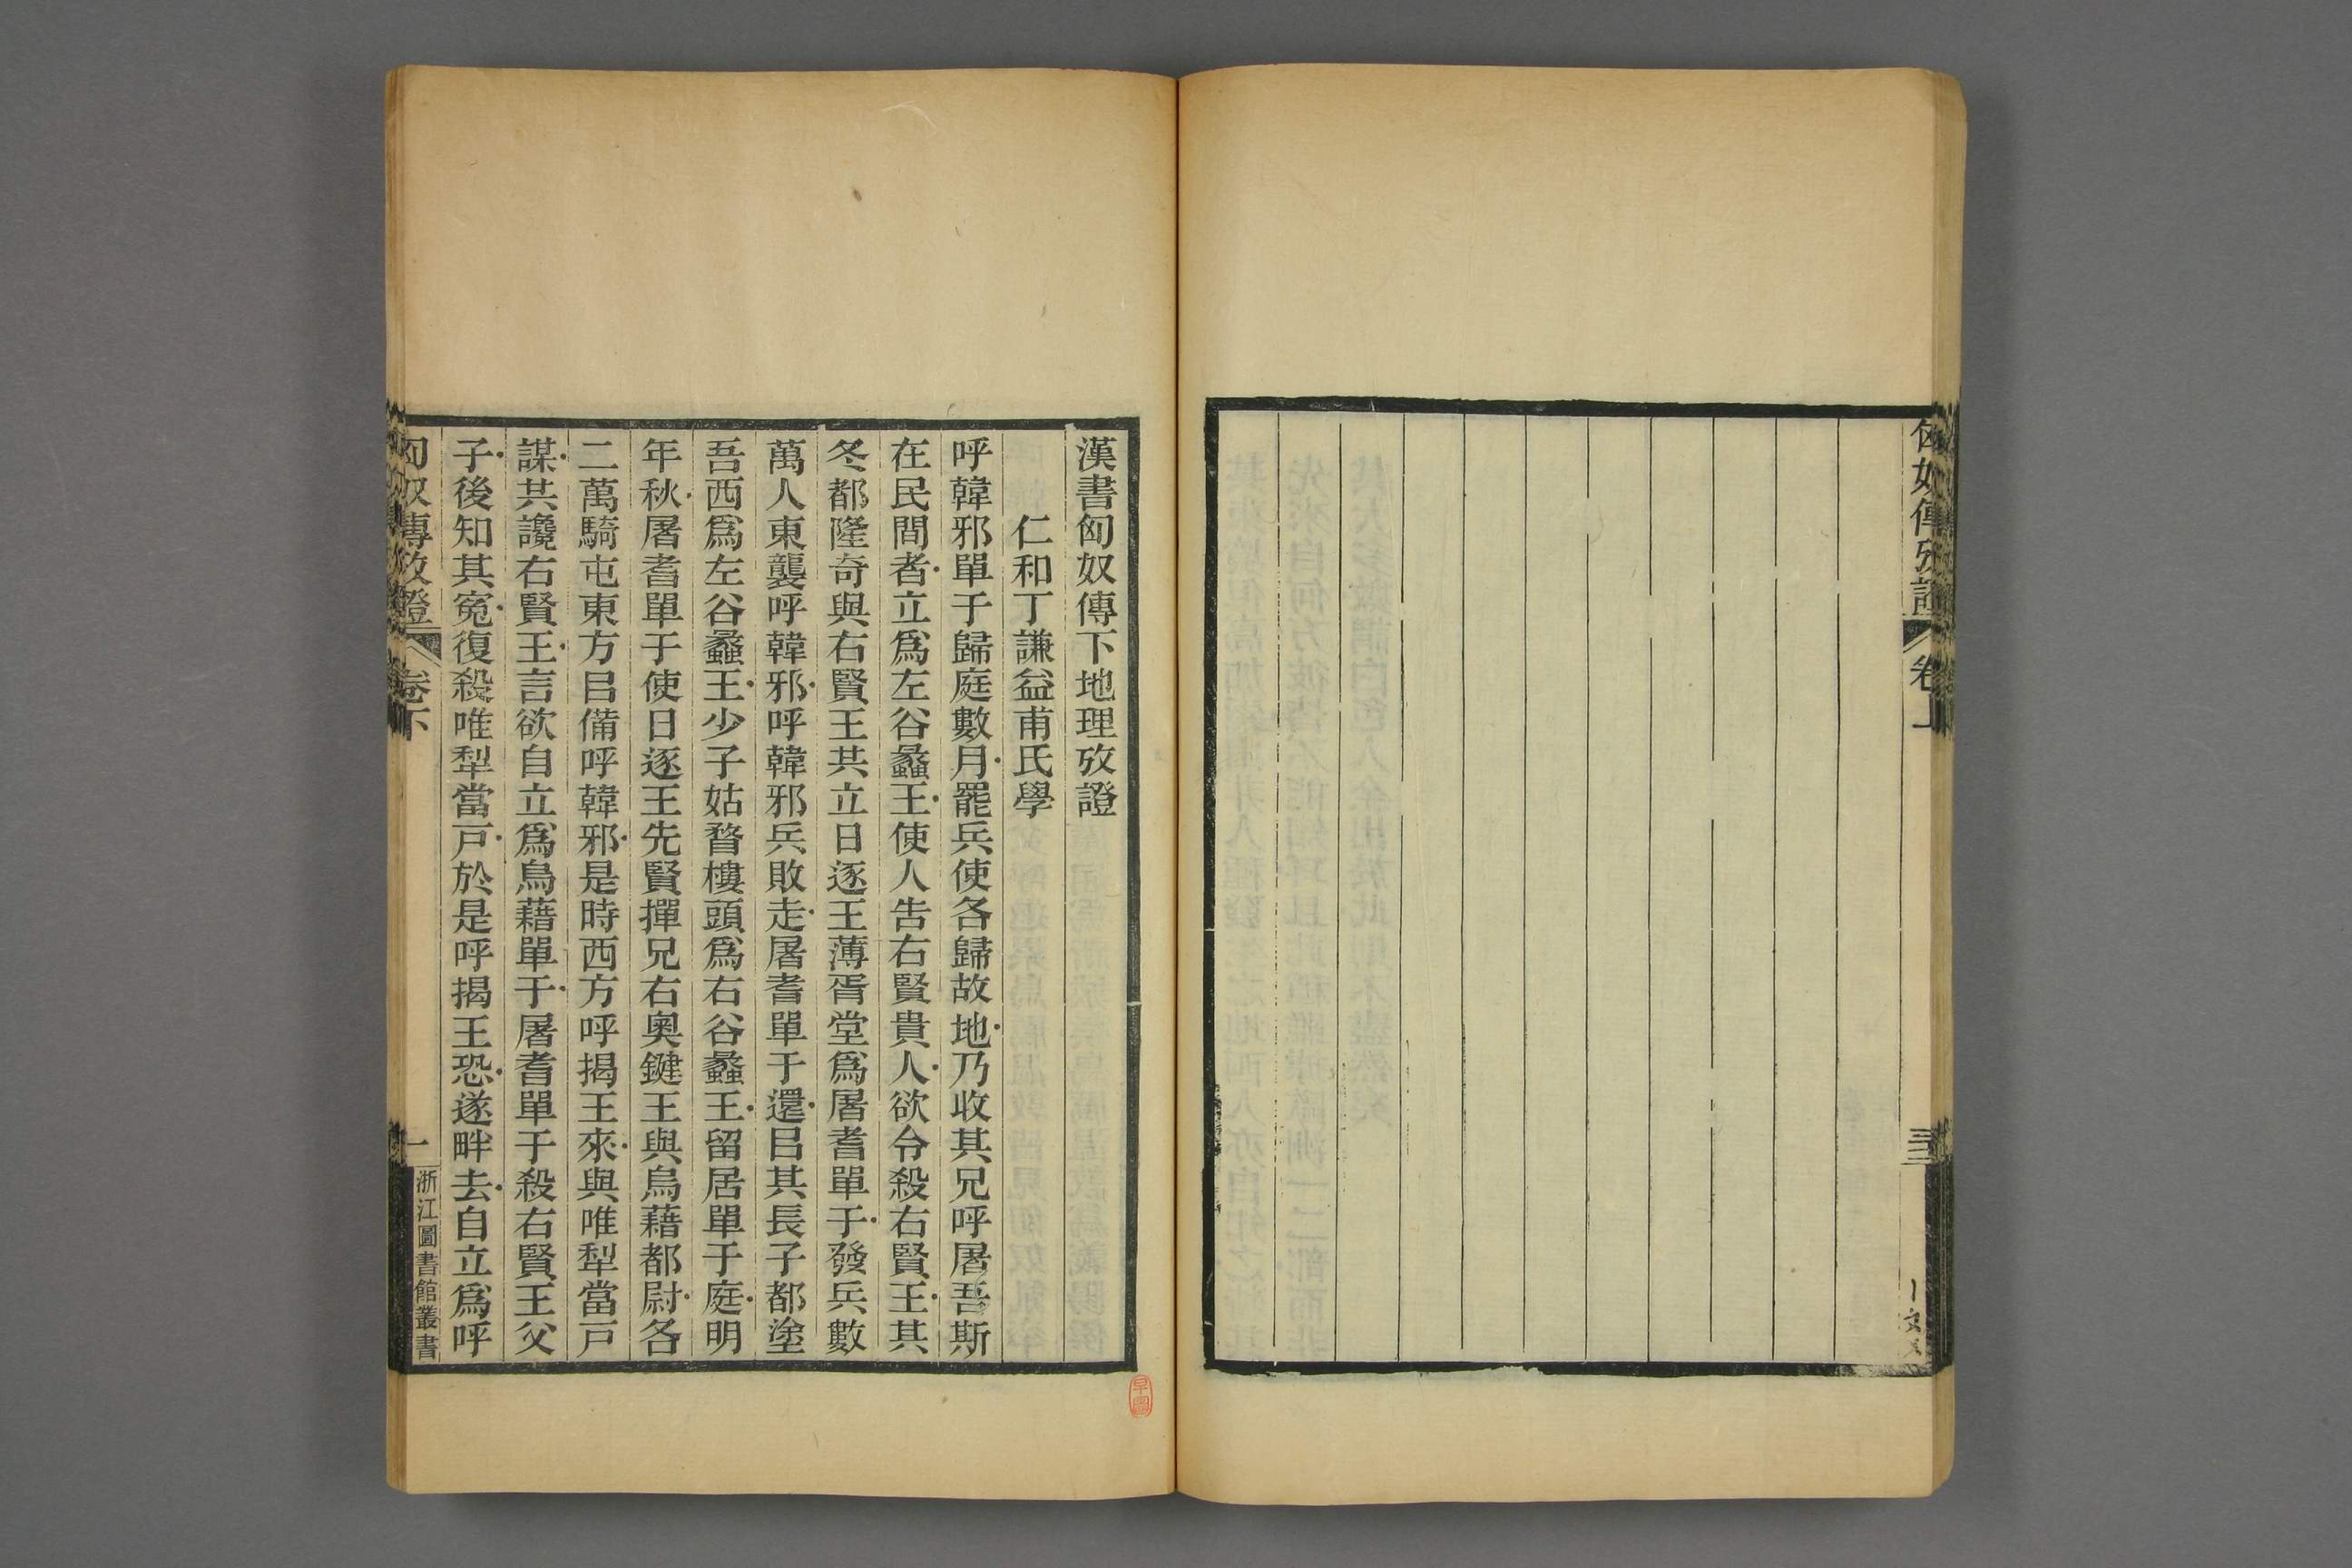 匈奴傳攷證 卷上
漢書匈奴傳下地理攷證
仁和丁謙益甫氏學
呼韓邪單于歸庭數月罷兵使各歸故地乃收其兄呼屠吾斯
在民間者立爲左谷蠡王使人告右賢貴人欲令殺右賢王其
冬都隆奇與右賢王共立日逐王薄胥堂爲屠耆單于發兵數
萬人東襲呼韓邪呼韓邪兵敗走屠耆單于還㠯其長子都塗
吾西爲左谷蠡王少子姑瞀樓頭爲右谷蠡王留居單于庭明
年秋屠耆單于使日逐王先賢撣兄右奧鍵王與烏藉都尉各
二萬騎屯東方㠯備呼韓邪是時西方呼揭王來與唯犁當戸
謀共讒右賢王言欲自立爲烏藉單于屠耆單于殺右賢王父
子後知其寃復殺唯犁當戸於是呼揭王恐遂畔去自立爲呼
匈奴傳攷證 卷下 一 浙江圖書館叢書